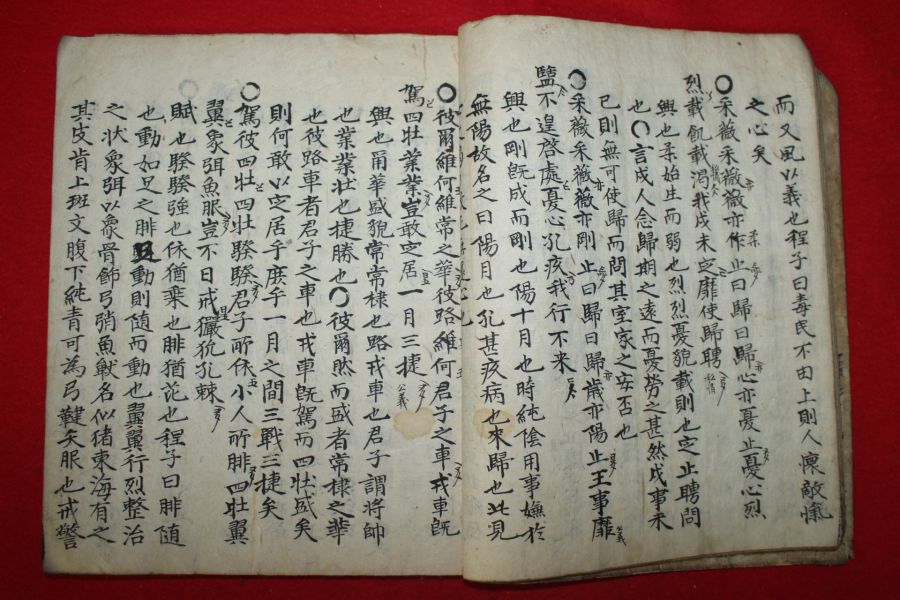 而又風以義也程子曰毒民不由上則人懷敵愾
之心矣
○采薇采薇薇亦柔止曰歸曰歸心亦憂止憂心烈
烈載飢載渴我戍未定靡使歸聘
興也柔始生而弱也烈烈憂貌載則也定止聘問
也○言戍人念歸期之遠而憂勞之甚然戍事未
已則無可使歸而問其室家之安否也
○采薇采薇薇亦剛止曰歸曰歸歲亦陽止王事靡
盬不遑啓處憂心孔疚我行不來
興也剛旣成而剛也陽十月也時純陰用事嫌於
無陽故名之曰陽月也孔甚疚病也來歸也此見
○彼爾維何維常之華彼路維何君子之車戎車旣
駕四牡業業豈敢定居一月三捷
興也爾華盛貌常常棣也路戎車也君子謂將帥
也業業壯也捷勝也○彼爾然而盛者常棣之華
也彼路車者君子之車也戎車旣駕而四牡盛矣
則何敢以定居乎庶乎一月之間三戰三捷矣
○駕彼四牡四牡騤騤君子所依小人所腓四牡翼
翼象弭魚服豈不日戒玁狁孔棘
賦也騤騤強也依猶乘也腓猶芘也程子曰腓隨
也動如足之腓足動則隨而動也翼翼行列整治
之狀象弭以象骨飾弓弰魚獸名似猪東海有之
其皮背上班文腹下純靑可為弓鞬矢服也戒警